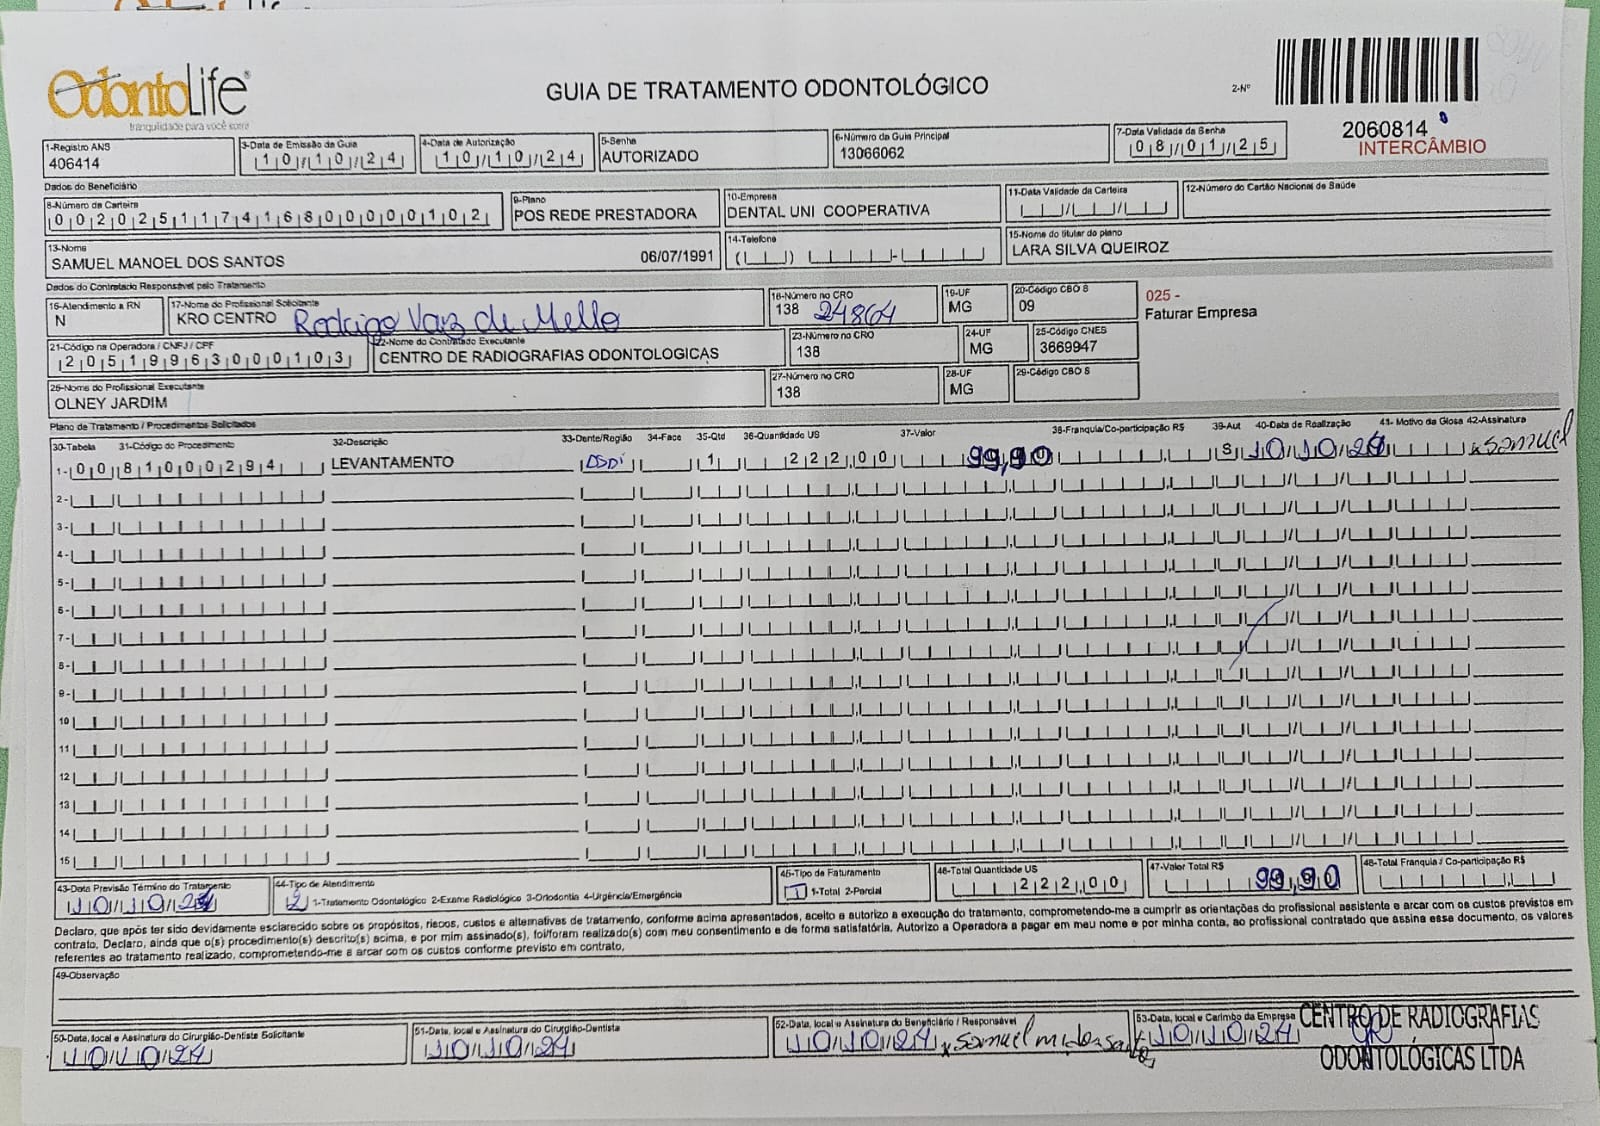 OdontoLife®
tranquilidade para você sorrir
GUIA DE TRATAMENTO ODONTOLÓGICO
2-Nº
2060814
INTERCÂMBIO
1-Registro ANS
406414
3-Data de Emissão da Guia
10/10/24
4-Data de Autorização
10/10/24
5-Senha
AUTORIZADO
6-Número da Guia Principal
13066062
7-Data Validade da Senha
08/01/25
Dados do Beneficiário
8-Número da Carteira
00202511741680000102
9-Plano
POS REDE PRESTADORA
10-Empresa
DENTAL UNI COOPERATIVA
11-Data Validade da Carteira
12-Número do Cartão Nacional de Saúde
13-Nome
SAMUEL MANOEL DOS SANTOS 06/07/1991
14-Telefone
15-Nome do titular do plano
LARA SILVA QUEIROZ
Dados do Contratado Responsável pelo Tratamento
16-Atendimento a RN
N
17-Nome do Profissional Solicitante
KRO CENTRO Rodrigo Vaz de Mello
18-Número no CRO
138 24864
19-UF
MG
20-Código CBO S
09
025 -
Faturar Empresa
21-Código na Operadora / CNPJ / CPF
20519963000103
22-Nome do Contratado Executante
CENTRO DE RADIOGRAFIAS ODONTOLOGICAS
23-Número no CRO
138
24-UF
MG
25-Código CNES
3669947
26-Nome do Profissional Executante
OLNEY JARDIM
27-Número no CRO
138
28-UF
MG
29-Código CBO S
Plano de Tratamento / Procedimentos Solicitados
30-Tabela 31-Código do Procedimento 32-Descrição 33-Dente/Região 34-Face 35-Qtd 36-Quantidade US 37-Valor 38-Franquia/Co-participação R$ 39-Aut 40-Data de Realização 41- Motivo da Glosa 42-Assinatura
1- 00 81000294 LEVANTAMENTO 1 222,00 99,90 S 10/10/24 x Samuel
2-
3-
4-
5-
6-
7-
8-
9-
10
11
12
13
14
15
43-Data Previsão Término do Tratamento
10/10/24
44-Tipo de Atendimento
2 1-Tratamento Odontológico 2-Exame Radiológico 3-Ortodontia 4-Urgência/Emergência
45-Tipo de Faturamento
1 1-Total 2-Parcial
46-Total Quantidade US
222,00
47-Valor Total R$
99,90
48-Total Franquia / Co-participação R$
Declaro, que após ter sido devidamente esclarecido sobre os propósitos, riscos, custos e alternativas de tratamento, conforme acima apresentados, aceito e autorizo a execução do tratamento, comprometendo-me a cumprir as orientações do profissional assistente e arcar com os custos previstos em
contrato. Declaro, ainda que o(s) procedimento(s) descrito(s) acima, e por mim assinado(s), foi/foram realizado(s) com meu consentimento e de forma satisfatória. Autorizo a Operadora a pagar em meu nome e por minha conta, ao profissional contratado que assina esse documento, os valores
referentes ao tratamento realizado, comprometendo-me a arcar com os custos conforme previsto em contrato,
49-Observação
50-Data, local e Assinatura do Cirurgião-Dentista Solicitante
10/10/24
51-Data, local e Assinatura do Cirurgião-Dentista
10/10/24
52-Data, local e Assinatura do Beneficiário / Responsável
10/10/24 x Samuel
53-Data, local e Carimbo da Empresa
10/10/24
CENTRO DE RADIOGRAFIAS
ODONTOLÓGICAS LTDA